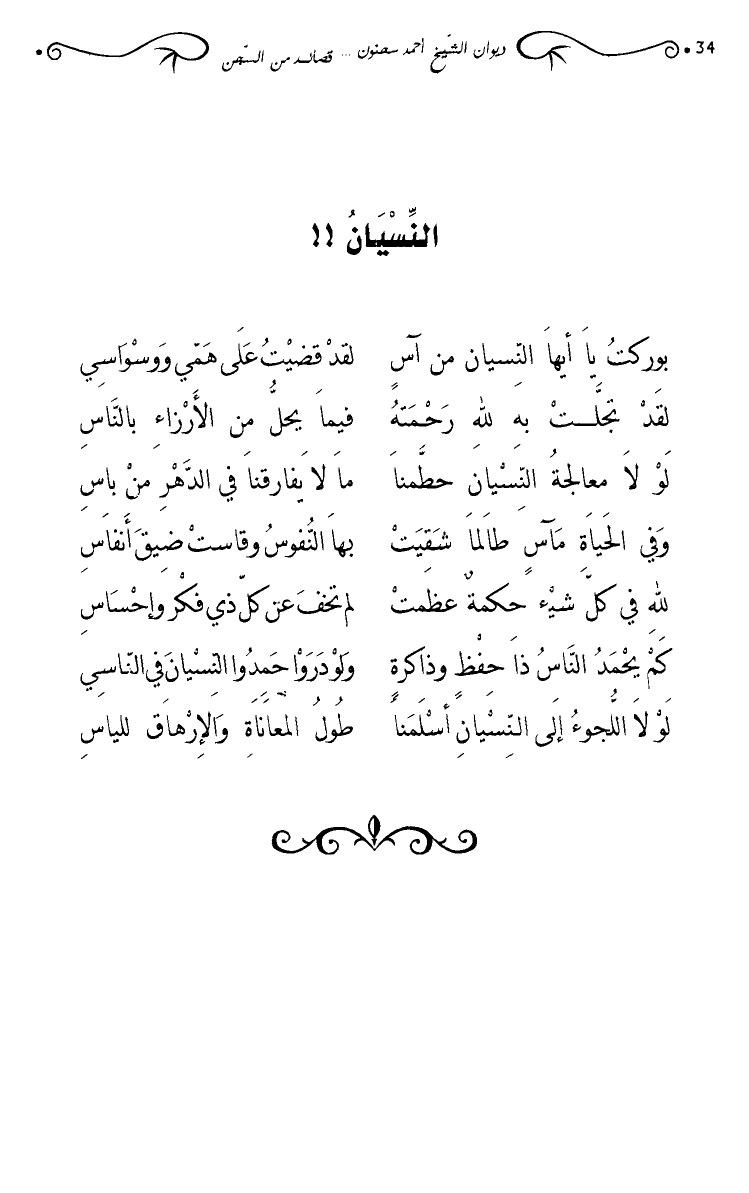 34 ديوان الشّيخ أحمد سحنون ... قصائد من السّجن
النِّسْيَانُ !!
بوركتُ يا أيها النّسيان من آسٍ لقدْ قضيْتُ عَلَى هَمّي وَوسْوَاسِي
لقَدْ تجلَّتْ بهِ للهِ رَحْمَتهُ فيما يحلُّ من الأَرْزاءِ بالنَّاسِ
لَوْ لاَ معالجةُ النّسْيان حطَّمناَ ماَ لاَ يفارقناَ في الدَّهْرِ منْ باسِ
وَفي الحَياَةِ مَآسٍ طاَلماَ شَقِيَتْ بهاَ النُّفوسُ وقاستْ ضيقَ أَنفاَسِ
للهِ في كلّ شيْءٍ حكمةٌ عظمتْ لم تخفَ عن كلّ ذي فكْر وإحْسَاسِ
كَمْ يحْمَدُ النَّاسُ ذاَ حِفْظٍ وذاكرةٍ وَلوْ دَرَوْا حَمِدُوا النّسْيانَ في النّاسي
لَوْ لاَ اللُّجوءُ إلَى النّسْيانِ أسْلَمَناَ طُولُ المُعاَناَةِ وَالإِرْهاَق للياسِ